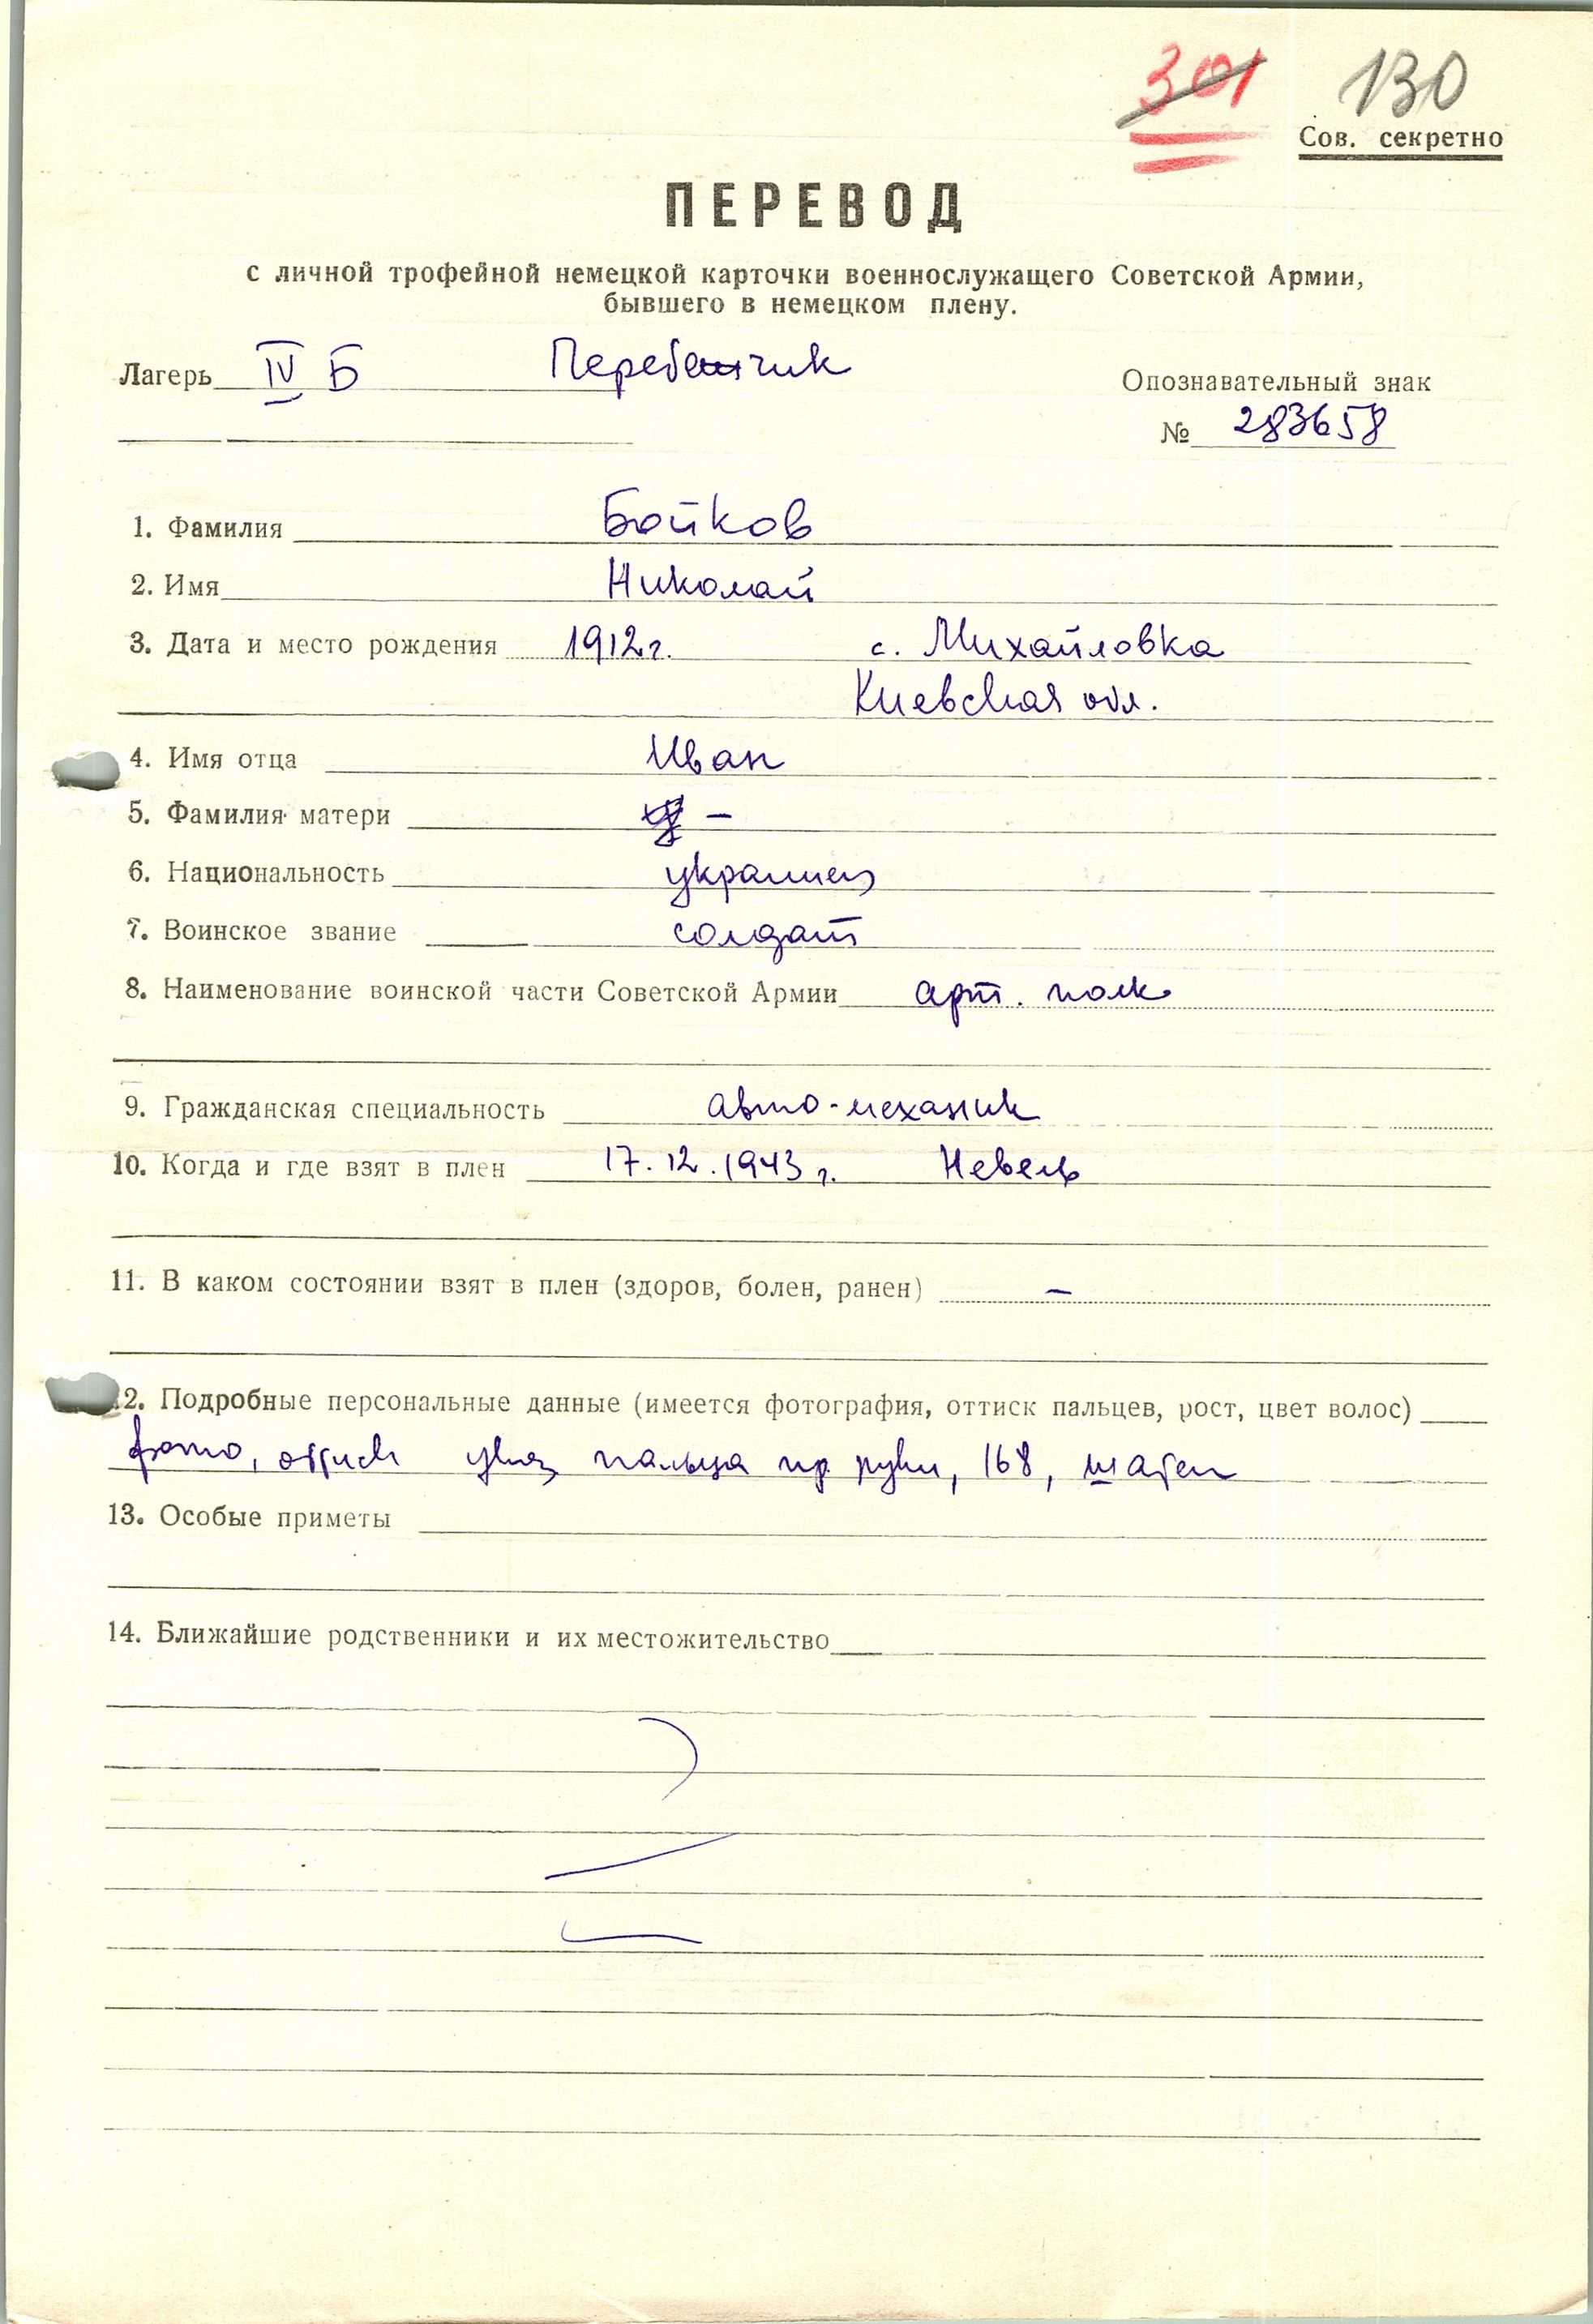 301 130
Сов. секретно
ПЕРЕВОД
с личной трофейной немецкой карточки военнослужащего Советской Армии,
бывшего в немецком плену.
Лагерь IV Б Перебежчик
Опознавательный знак
№ 283658
1. Фамилия Бойков
2. Имя Николай
3. Дата и место рождения 1912г. с. Михайловка
Киевская обл.
4. Имя отца Иван
5. Фамилия матери –
6. Национальность украинец
7. Воинское звание солдат
8. Наименование воинской части Советской Армии арт. полк
9. Гражданская специальность авто-механик
10. Когда и где взят в плен 17.12.1943 г. Невель
11. В каком состоянии взят в плен (здоров, болен, ранен) –
12. Подробные персональные данные (имеется фотография, оттиск пальцев, рост, цвет волос)
фото, оттиск указ пальца пр руки, 168, шатен
13. Особые приметы
14. Ближайшие родственники и их местожительство